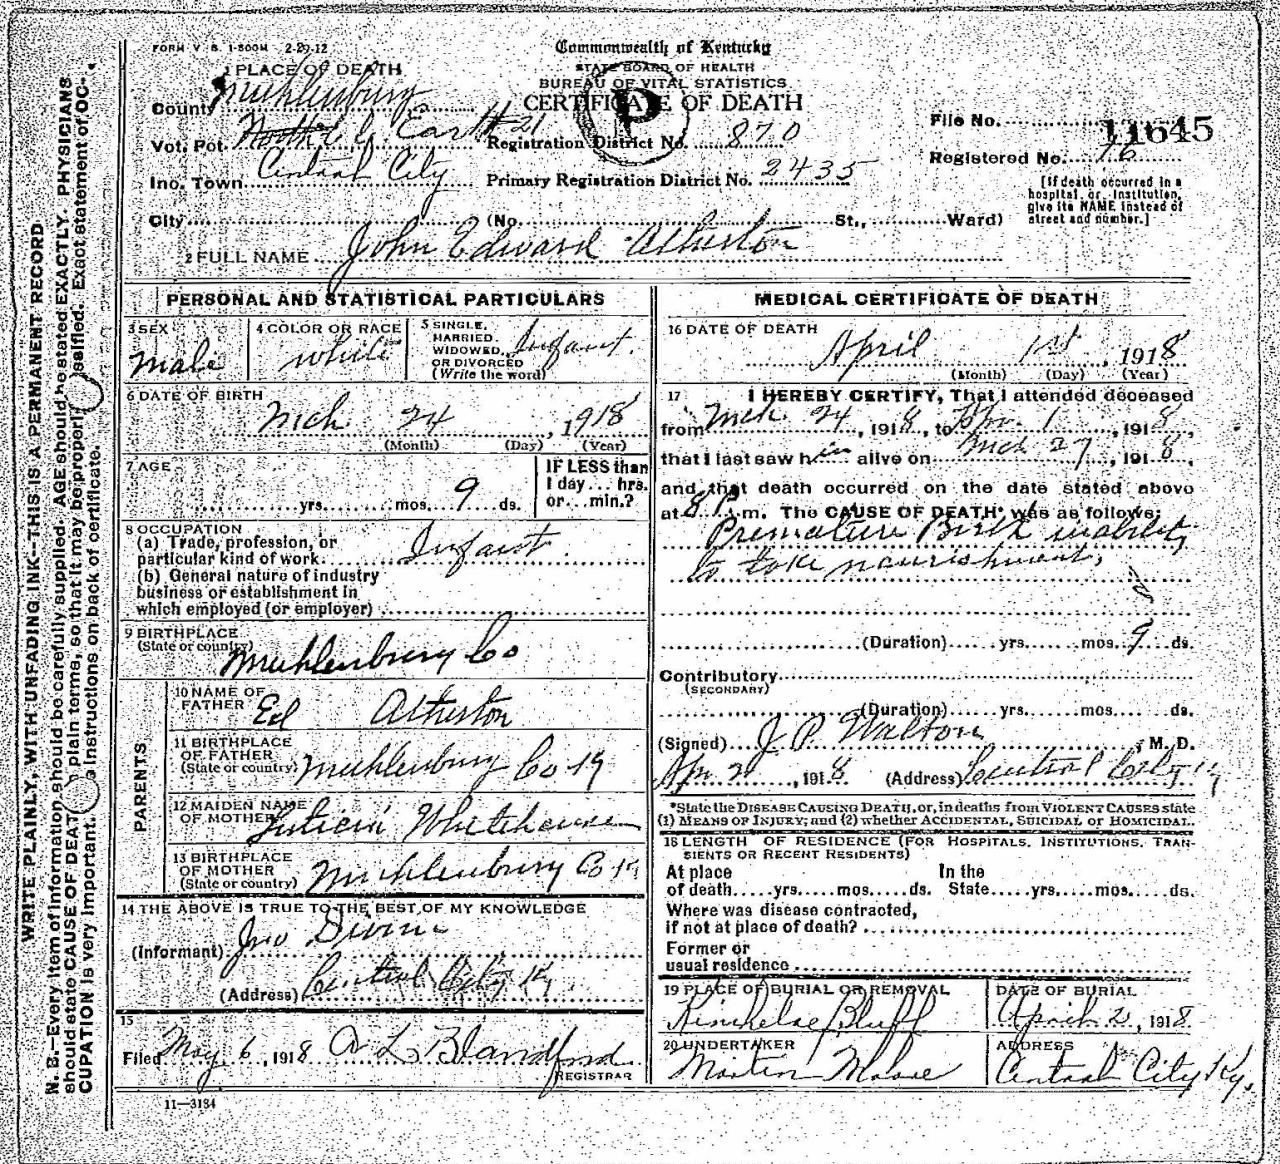 FORM V. S. 1-500M 2-29-12
Commonwealth of Kentucky
STATE BOARD OF HEALTH
BUREAU OF VITAL STATISTICS
CERTIFICATE OF DEATH
P
1 PLACE OF DEATH
County Muhlenburg
Vot. Pct. Earth 21 Registration District No. 870
File No. 11645
Registered No. 76
Inc. Town Central City Primary Registration District No. 2435
[If death occurred in a hospital or institution, give its NAME instead of street and number.]
City (No. St., Ward)
2 FULL NAME John Edward Atherton
PERSONAL AND STATISTICAL PARTICULARS
3 SEX Male
4 COLOR OR RACE white
5 SINGLE, MARRIED, WIDOWED, OR DIVORCED (Write the word) Infant.
6 DATE OF BIRTH Mch 24, 1918
(Month) (Day) (Year)
7 AGE yrs. mos. 9 ds.
IF LESS than 1 day... hrs. or... min.?
8 OCCUPATION
(a) Trade, profession, or particular kind of work Infant.
(b) General nature of industry business or establishment in which employed (or employer)
9 BIRTHPLACE (State or country) Muhlenburg Co
PARENTS
10 NAME OF FATHER Ed Atherton
11 BIRTHPLACE OF FATHER (State or country) Muhlenburg Co Ky
12 MAIDEN NAME OF MOTHER Whitehouse
13 BIRTHPLACE OF MOTHER (State or country) Muhlenburg Co Ky
14 THE ABOVE IS TRUE TO THE BEST OF MY KNOWLEDGE
(Informant) Jno Divine
(Address) Central City Ky
15
Filed May 6, 1918 A L Blandford
REGISTRAR
11—3184
MEDICAL CERTIFICATE OF DEATH
16 DATE OF DEATH
April 1st, 1918
(Month) (Day) (Year)
17 I HEREBY CERTIFY, That I attended deceased
from Mch. 24, 1918, to Apr. 1, 1918,
that I last saw him alive on Mch 27, 1918,
and that death occurred on the date stated above
at 8 P. m. The CAUSE OF DEATH* was as follows:
Premature Birth inability
to take nourishment,
(Duration) yrs. mos. 9 ds.
Contributory
(SECONDARY)
(Duration) yrs. mos. ds.
(Signed) J P Walton, M. D.
Apr 2, 1918 (Address) Central City Ky
*State the DISEASE CAUSING DEATH, or, in deaths from VIOLENT CAUSES state
(1) MEANS OF INJURY; and (2) whether ACCIDENTAL, SUICIDAL or HOMICIDAL.
18 LENGTH OF RESIDENCE (FOR HOSPITALS, INSTITUTIONS, TRANSIENTS OR RECENT RESIDENTS)
At place of death yrs. mos. ds. In the State yrs. mos. ds.
Where was disease contracted,
if not at place of death?
Former or
usual residence
19 PLACE OF BURIAL OR REMOVAL Kincheloe Bluff
DATE OF BURIAL April 2, 1918
20 UNDERTAKER Martin Moore
ADDRESS Central City Ky.
WRITE PLAINLY, WITH UNFADING INK—THIS IS A PERMANENT RECORD
N. B.—Every item of information should be carefully supplied. AGE should be stated EXACTLY. PHYSICIANS
should state CAUSE OF DEATH in plain terms, so that it may be properly classified. Exact statement of OC-
CUPATION is very important. See instructions on back of certificate.